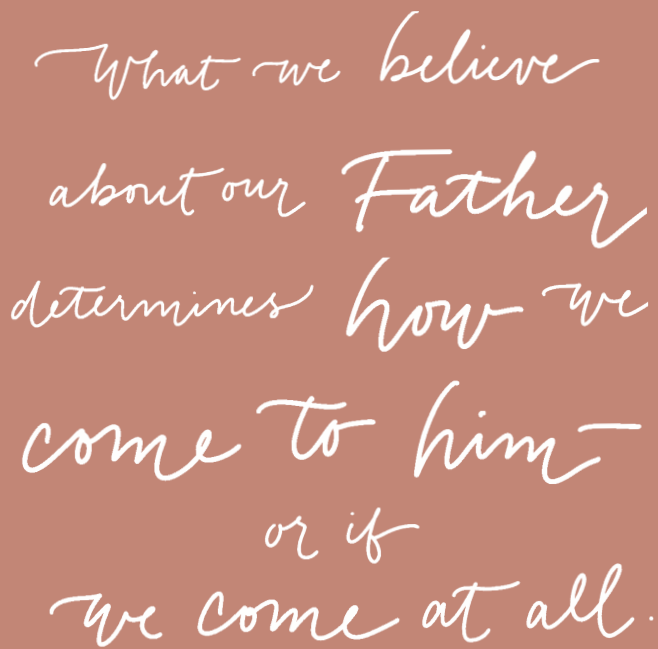 What we believe
about our Father
determines how we
come to him—
or if
we come at all.